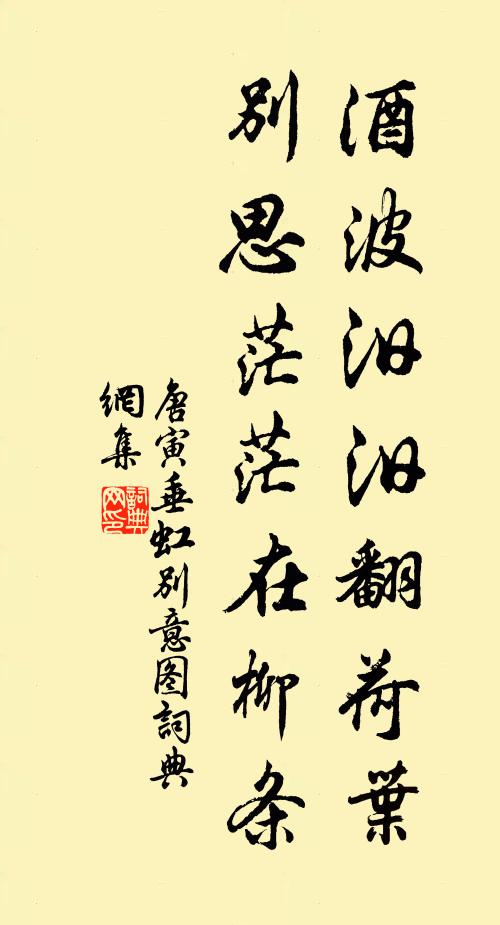 酒波汩汩翻荷葉
別思茫茫在柳条
唐寅垂虹別意图詞典
網集
詞典
网印